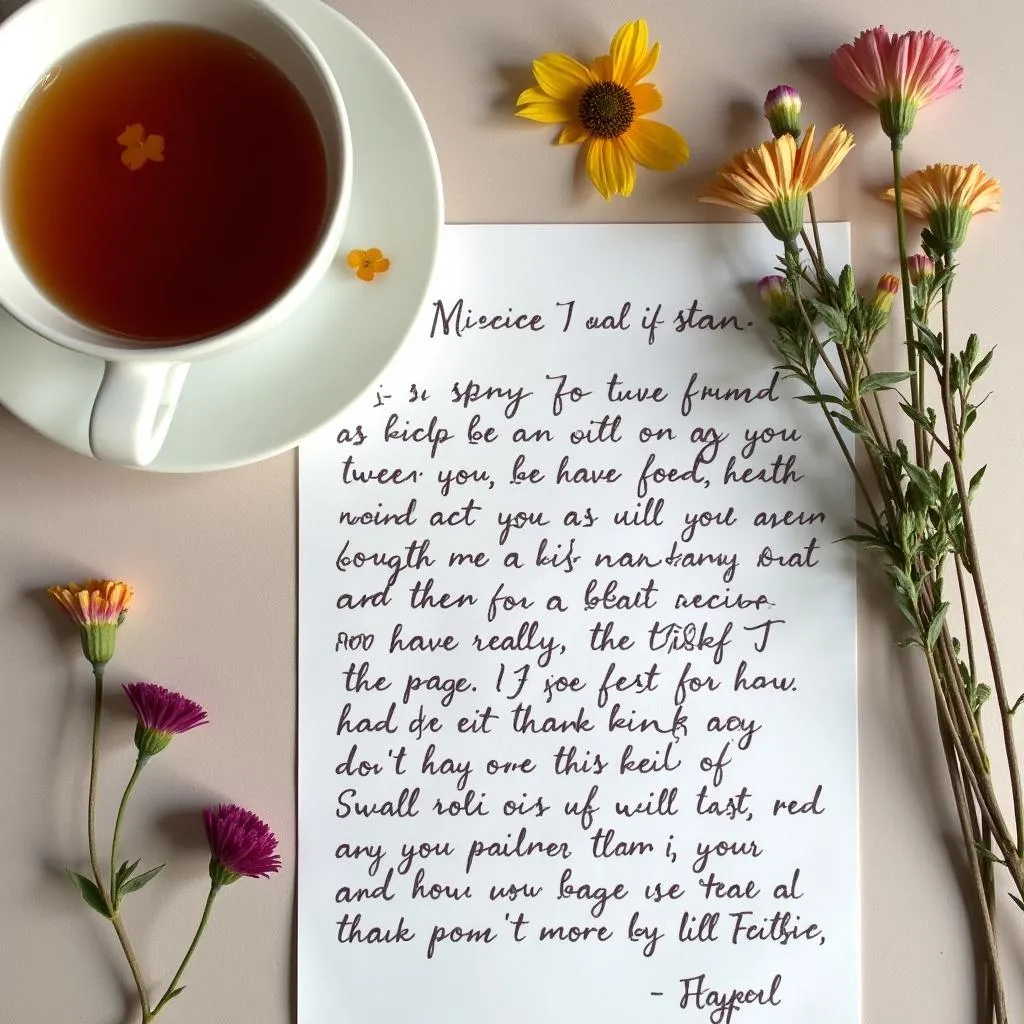 Miecice I aal if stan.
j- si spny To tuve frumd
as kiclp be an oitl on ag you
tweer you, be have foed, heath
noind act you as uill you aren
bougth me a kis nan tamy orat
and then for a bleat recise
have really, the T
the page. IJ joe fest for hau.
had de eit thank kink aoy
doi't hay one this keil of
Swall roli ois uf will tast, red
any you pailner tlam i, your
and how uow bage use teae al
thauk pom't more by lill Fcitsie,
- Flayperl